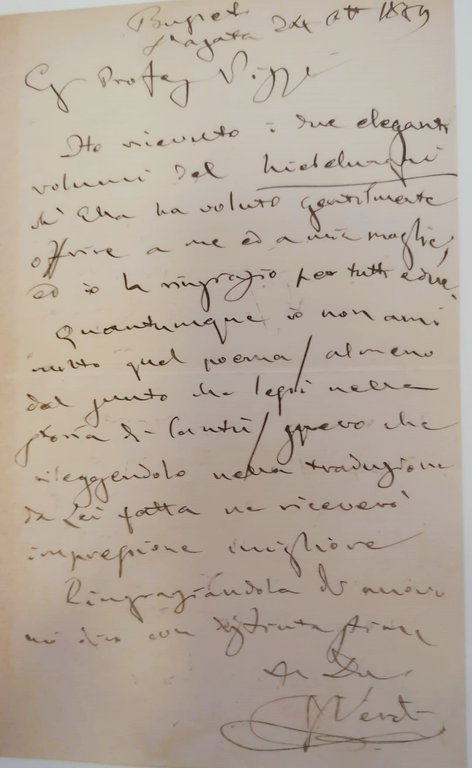 Busseto
S'Agata 24 Ott 1889
Eg. Profess. Pizzi
Ho ricevuto i due eleganti
volumi del Niebelunghi
ch'Ella ha voluto gentilmente
offrire a me ed a mia moglie;
ed io la ringrazio per tutti e due.
Quantunque io non ami
molto quel poema / almeno
dal punto che lessi nella
storia di Cantù / spero che
rileggendolo nella traduzione
da Lei fatta ne riceverò
impressione migliore
Ringraziandola di nuovo
mi dico con distinta stima
Di Lei
G Verdi